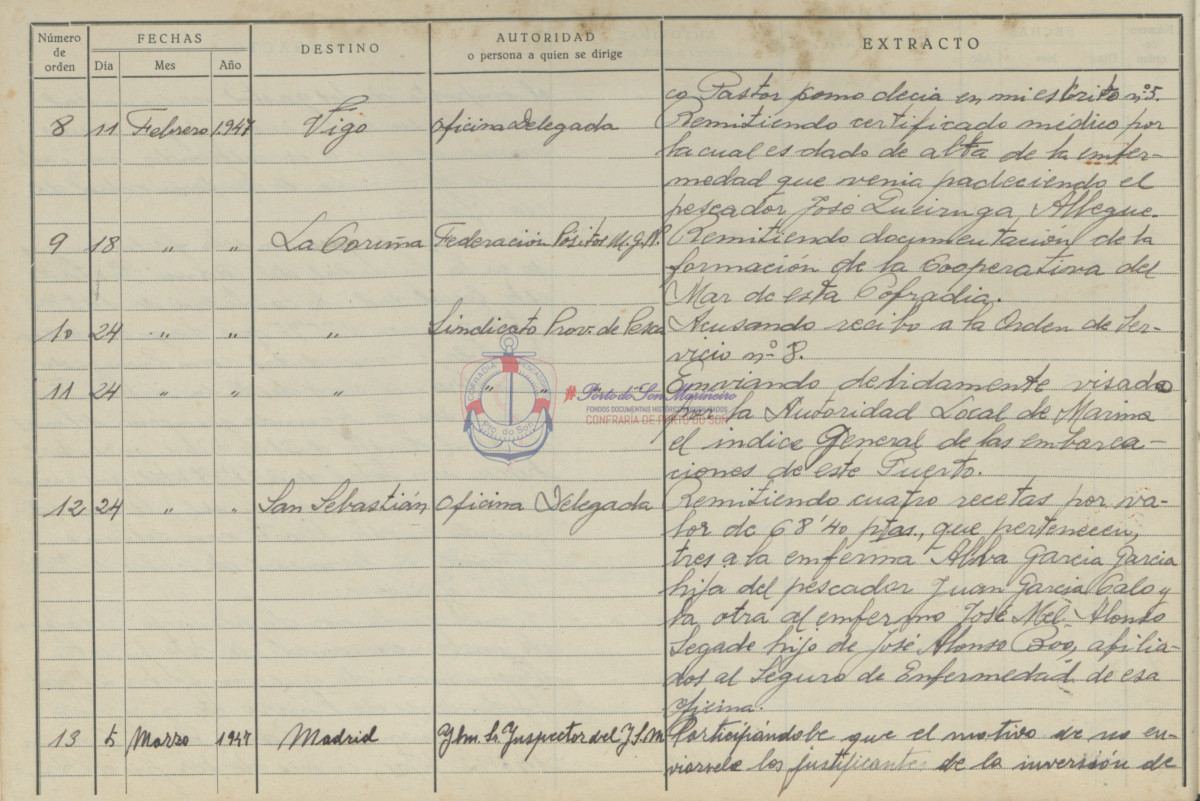 Número de orden | FECHAS | DESTINO | AUTORIDAD o persona a quien se dirige | EXTRACTO
Dia | Mes | Año
co Pastor como decia en mi escrito nº 5.
8 | 11 | Febrero | 1947 | Vigo | Oficina Delegada | Remitiendo certificado médico por
la cual es dado de alta de la enfer-
medad que venia padeciendo el
pescador José Queiruga, Albegue.
9 | 18 | " | " | La Coruña | Federación Pósitos M. g. P. | Remitiendo documentación de la
formación de la Cooperativa del
Mar de esta Cofradia.
10 | 24 | " | " | " | Sindicato Prov. de Pesca | Acusando recibo a la Orden de Ser-
vicio nº 8.
11 | 24 | " | " | " | " " " | Enviando debidamente visado
por la Autoridad Local de Marina
el indice General de las embarca-
ciones de este Puerto.
12 | 24 | " | " | San Sebastián | Oficina Delegada | Remitiendo cuatro recetas por va-
lor de 68'40 ptas., que pertenecen,
tres a la enferma Alba Garcia Garcia
hija del pescador Juan Garcia Calo y
la otra al enfermo José Mel. Alonso
Segade hijo de José Alonso Boo, afilia-
dos al Seguro de Enfermedad de esa
Oficina.
13 | 5 | Marzo | 1947 | Madrid | Ylm. Sr. Inspector del I.S.M. | Participándole que el motivo de no en-
viarvele los justificantes de la inversión de
COFRADÍA PESCADORES
Pto. do Son
# Porto do Son Mariñeiro
FONDOS DOCUMENTAIS HISTÓRICOS
CONFRARÍA DE PORTO DO SON